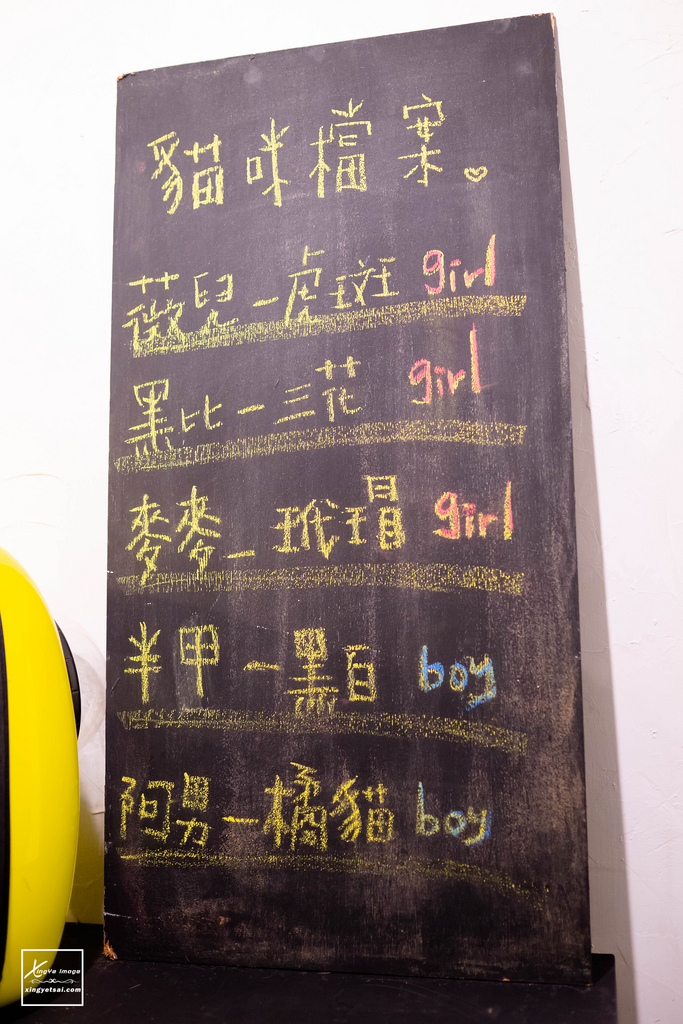 貓咪檔案♡
薇兒-虎斑 girl
黑比-三花 girl
麥麥-玳瑁 girl
半甲-黑白 boy
阿男-橘貓 boy
XingYe Image
xingyetsai.com